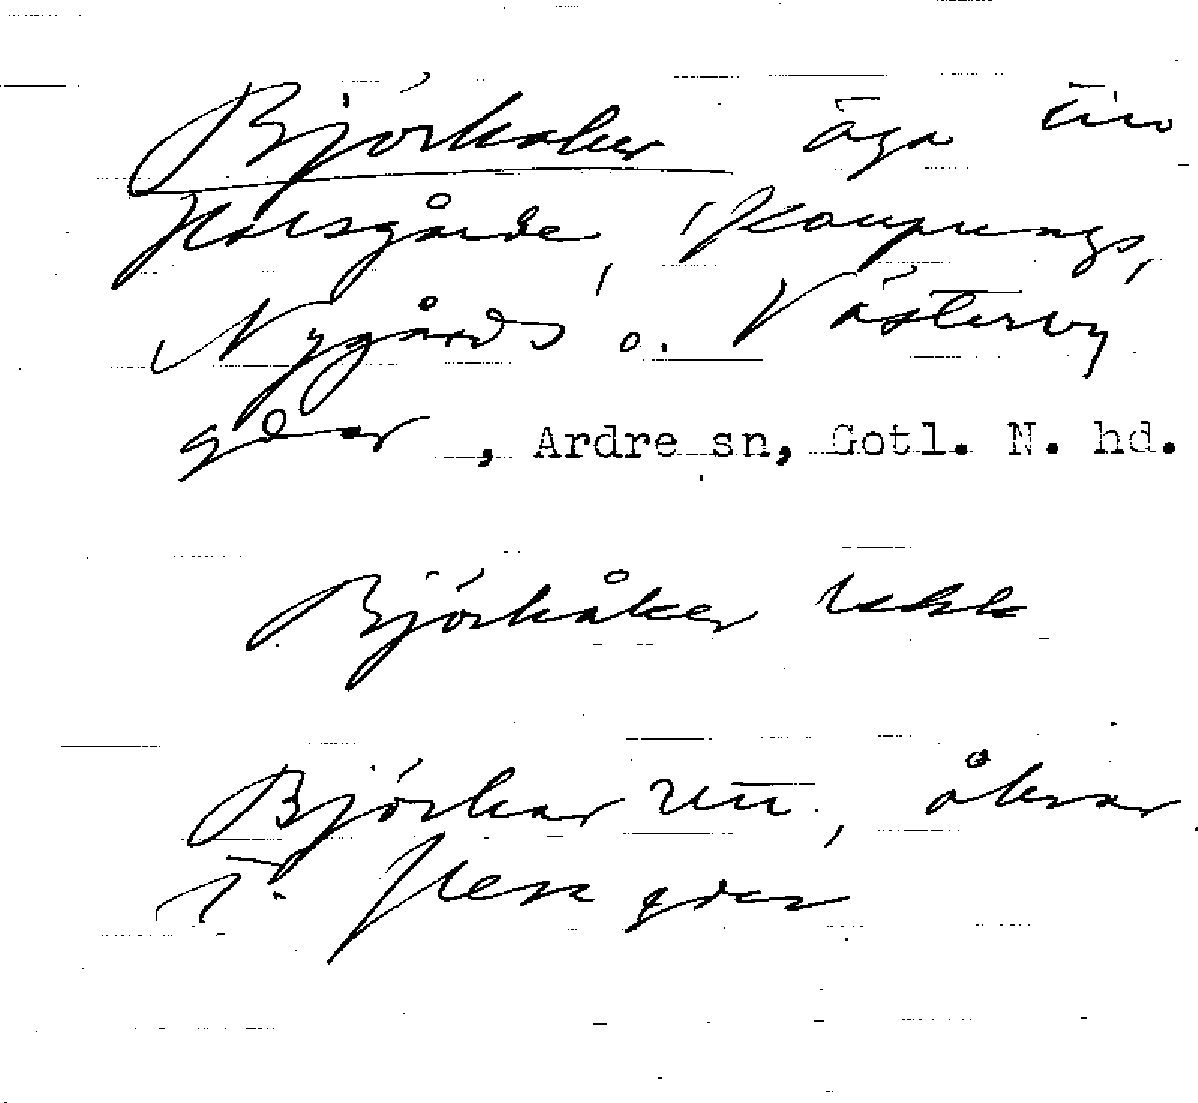 Björkaker äga till
Halsgårde, Kaupungs,
Nygårds o. Västerby
gdar, Ardre sn, Gotl. N. hd.
Björkåker
Björkar utt., åkrar
T. flera gdar